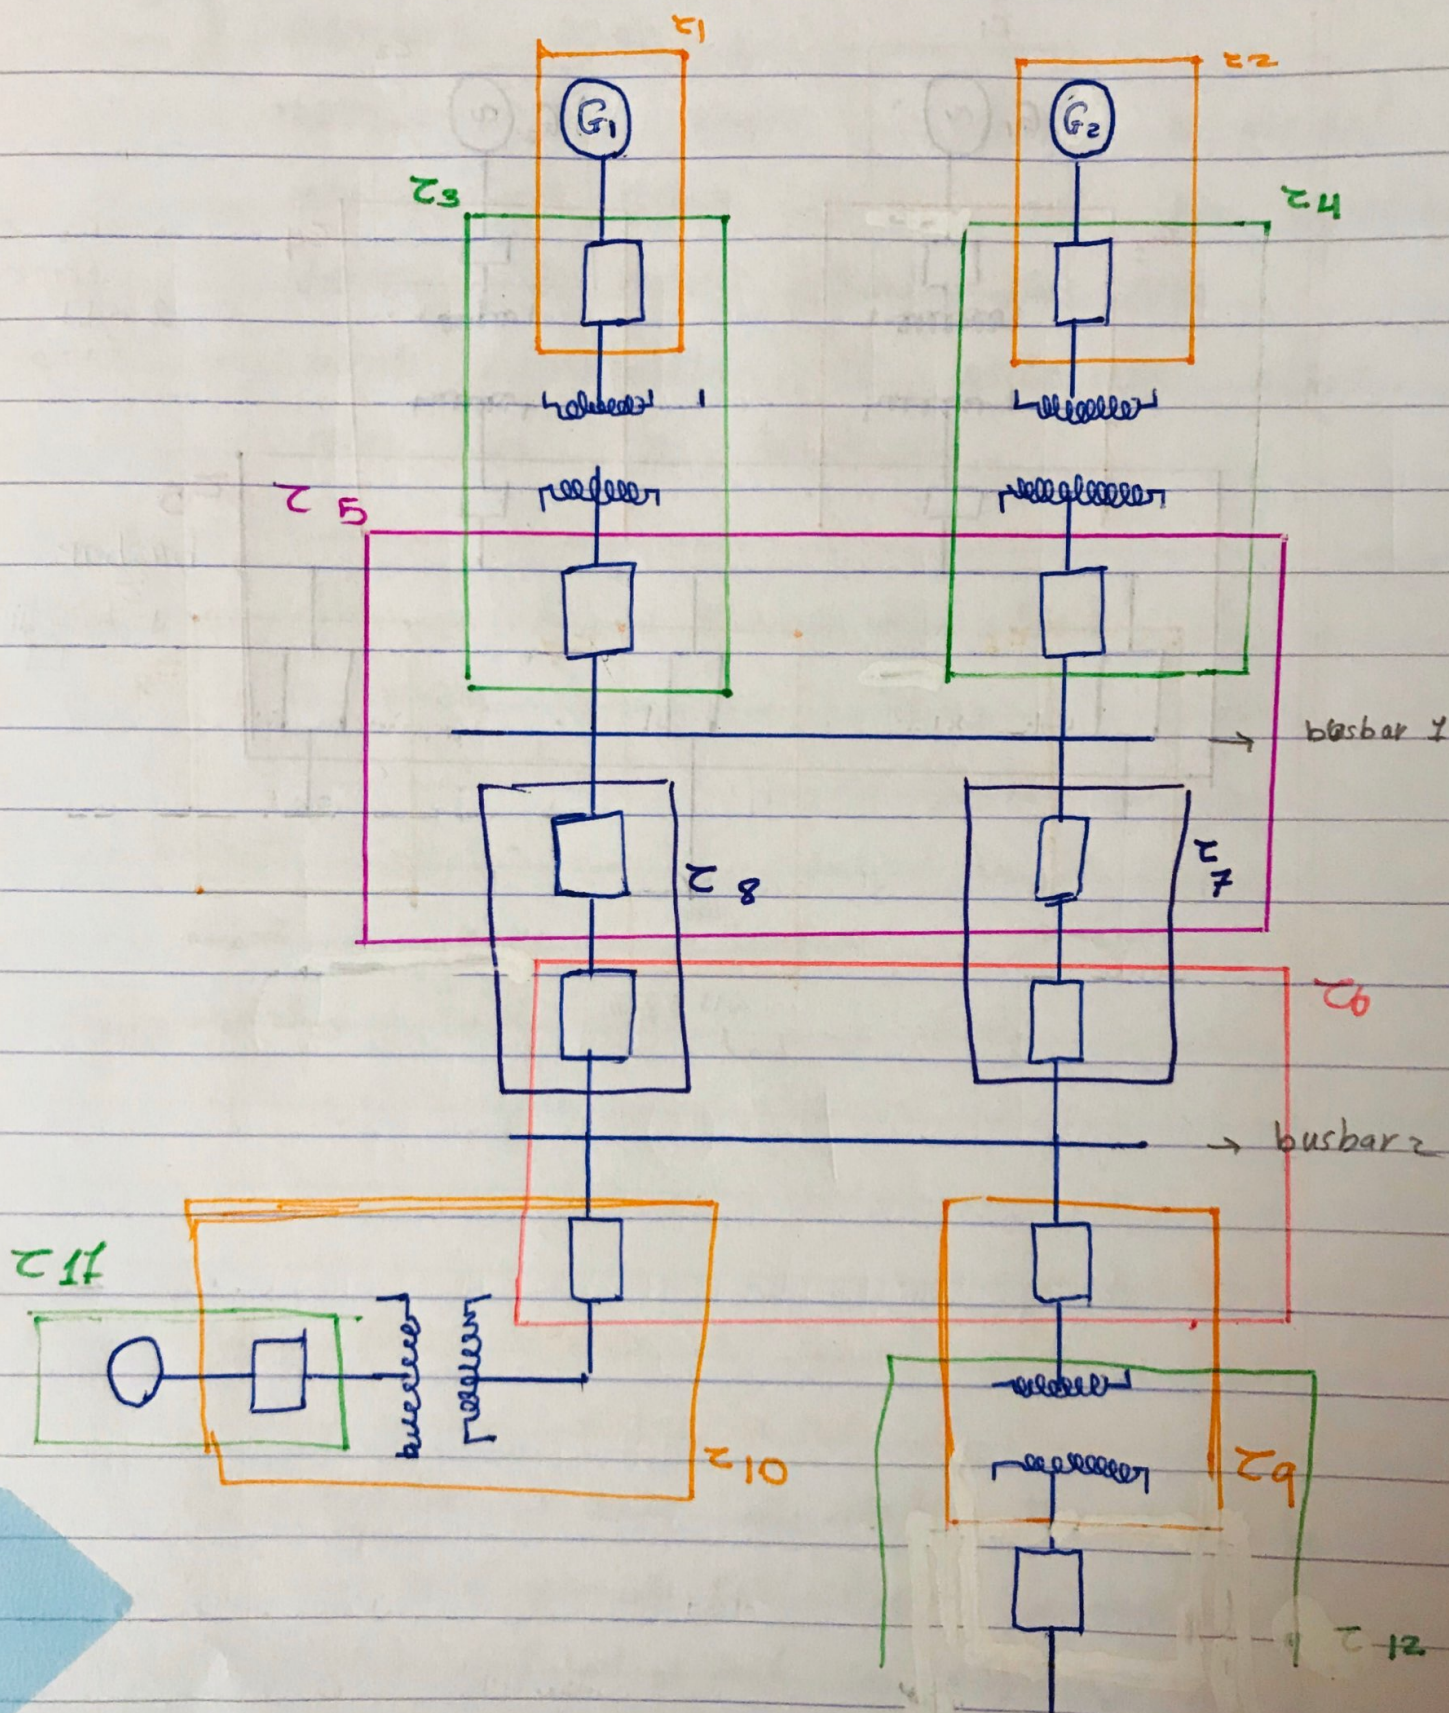 Z1
Z2
G1
G2
Z3
Z4
Z5
busbar 1
Z8
Z7
Z6
busbar 2
Z11
Z10
Z9
Z12